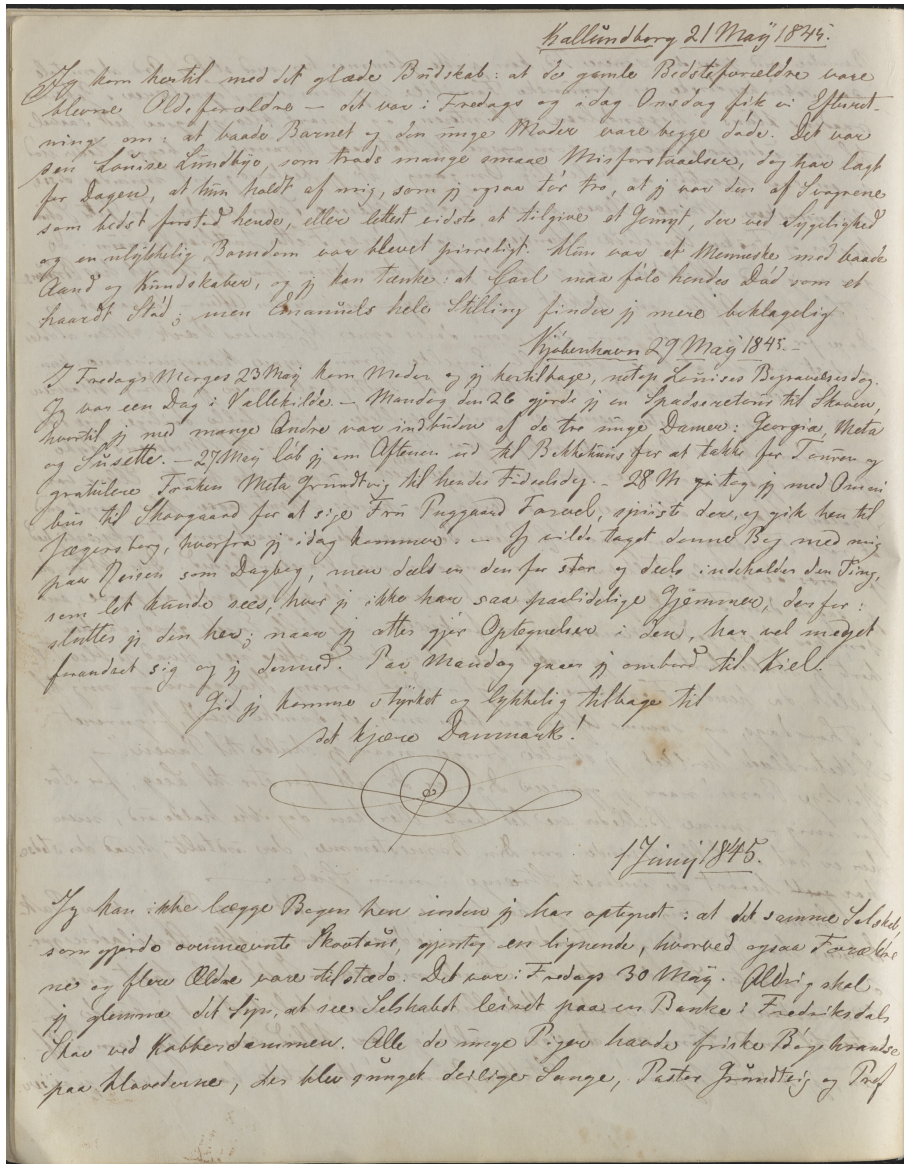 Kallundborg 21 Maÿ 1845.
Jeg kom hertil med det glæde Budskab: at de gamle Bedsteforældre vare
blevne Oldeforældre – det var i Fredags og idag Onsdag fik vi Efterret-
ning om: at baade Barnet og den unge Moder vare begge døde. Det var
Louise Lundbÿe, som trods mange smaae Misforstaaelser, dog har lagt
for Dagen, at hun holdt af mig, som jeg ogsaa tør tro, at jeg var den af Svogrene
som bedst forstod hende, eller lettest vidste at tilgive et Gemÿt, der ved Sygelighed
og en ulÿkkelig Barndom var blevet pirreligt. Hun var et Menneske med baade
Aand og Kundskaber, og jeg kan tænke: at Carl maa føle hendes Død som et
haardt Stød; men Emanuels hele Stilling finder jeg mere beklagelig
Kjøbenhavn 29 Maÿ 1845.–
I Fredags Morges 23 Maÿ kom Moder og jeg hertilbage, netop Louises Begravelsesdag.
Jeg var een Dag i Vallekilde. – Mandag den 26 gjorde jeg en Spadseretour til Skoven,
hvortil jeg med mange Andre var indbuden af de tre unge Damer: Georgia, Meta
og Susette. – 27 Maÿ løb jeg om Aftenen ud til Bakkehuus for at takke for Touren og
gratulere Frøken Meta Grundtvig til hendes Fødselsdag. – 28 M tog jeg med Omni
bus til Skovgaard for at sige Fru Puggaard Farvel, spiiste der, og gik hen til
Jægersborg, hvorfra jeg idag kommer. – Jeg vilde taget denne Bog med mig
paa Reisen som Dagbog, men deels er den for stor og deels indeholder den Ting,
som let kunde sees, hvor jeg ikke har saa paalidelige Gjemmer, derfor:
sluttes jeg den her; naar jeg atter gjør Optegnelser i den, har vel meget
forandret sig og jeg dermed. Paa Mandag gaaer jeg ombord til Kiel.
Gid jeg komme stÿrket og lykkelig tilbage til
det kjære Danmark!
1 Junij 1845.
Jeg kan ikke lægge Bogen hen inden jeg har optegnet: at det samme Selskab,
som gjorde ovennævnte Skovtour, gjentog en lignende, hvorved ogsaa Forældre
ne og flere Ældre vare tilstæde. Det var i Fredags 30 Maÿ. Aldrig skal
jeg glemme det Syn, at see Selskabet leiret paa en Banke i Fredriksdals
Skov ved Kobberdammen. Alle de unge Piger havde friske Bøgekrandse
paa Hovederne, der blev sunget deilige Sange, Pastor Grundtvig og Prof